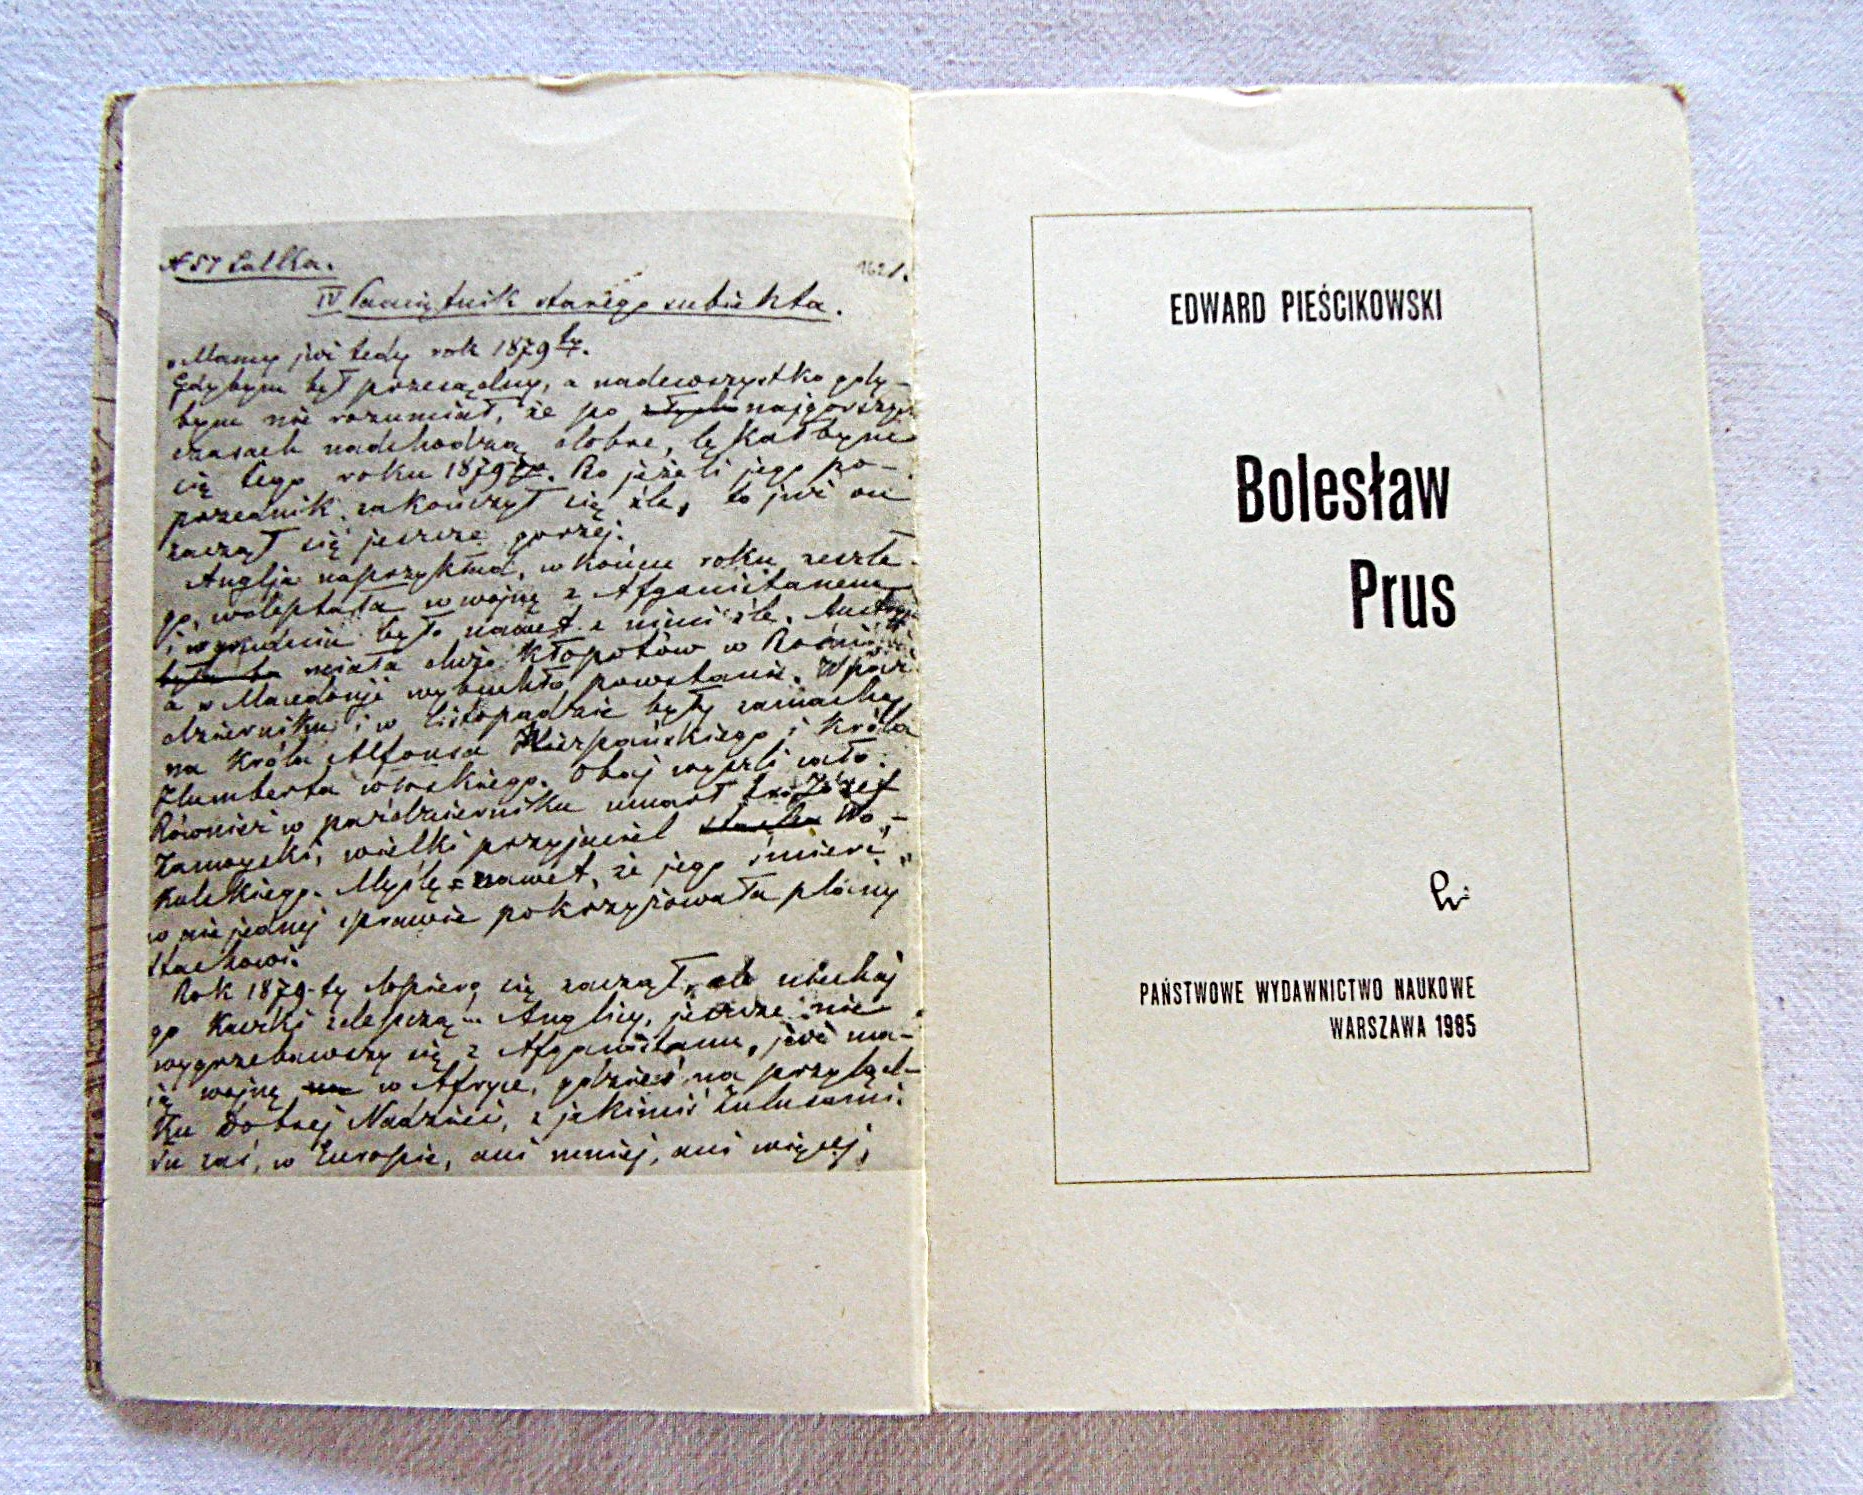 № 57 Lalka.
162/.
IV Pamiętnik starego subiekta.
„Mamy już tedy rok 1879ty.
Gdybym był przesądny, a nadewszystko gdy-
bym nie rozumiał, że po złych najgorszych
czasach nadchodzą dobre, lękałbym
się tego roku 1879go. Bo jeżeli jego po-
przednik zakończył się źle, to już on
zaczął się jeszcze gorzej.
Anglja naprzykład, w końcu roku zeszłe-
go, wdeptała w wojnę z Afganistanem
i w grudniu było nawet z nimi źle. Austrja
była to miała dużo kłopotów w Bośnii,
a w Macedonji wybuchło powstanie. W paź-
dzierniku i w listopadzie były zamachy
na króla Alfonsa Hiszpańskiego i króla
Humberta włoskiego. Obaj wyszli cało.
Również w październiku umarł hr. Józef
Zamoyski, wielki przyjaciel Stacha Wo-
kulskiego. Myślę nawet, że jego śmierć
w niejednej sprawie pokrzyżowała plany
Stachowi.
Rok 1879-ty dopiero się zaczął, ale niechaj
go kaczki zdepczą... Anglicy, jeszcze nie
wygrzebawszy się z Afganistanu, już ma-
ją wojnę na w Afryce, gdzieś na przyląd-
ku Dobrej Nadziei, z jakimiś Zulusami.
Tu zaś, w Europie, ani mniej, ani więcej,
EDWARD PIEŚCIKOWSKI
Bolesław
Prus
PAŃSTWOWE WYDAWNICTWO NAUKOWE
WARSZAWA 1985